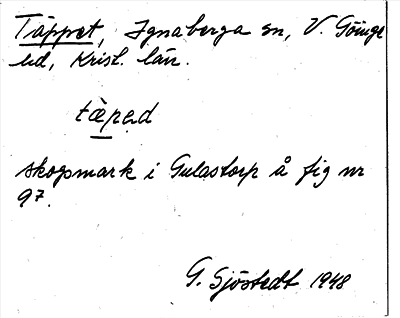 Täppet, Ignaberga sn, V. Göinge
hd, Krist. län.
tæ̀pəd
skogsmark i Gulastorp å fig nr
97.
G. Sjöstedt 1948